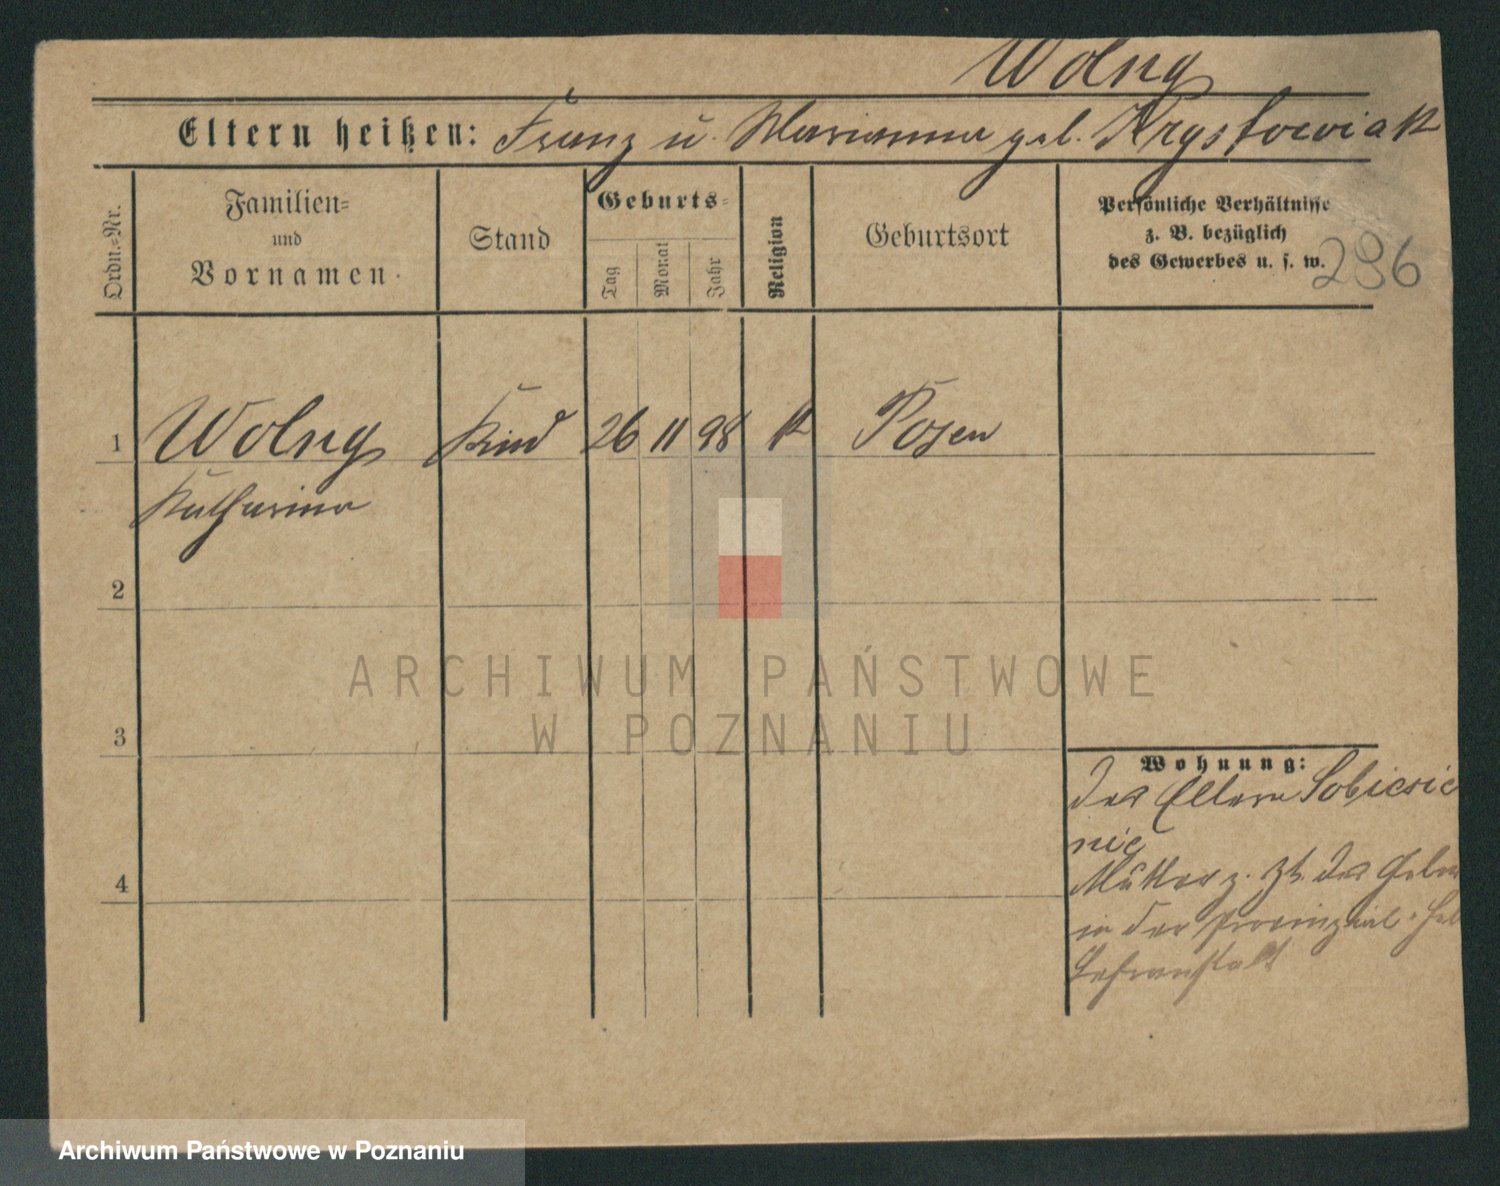 Wolny
Eltern heißen: Franz u. Marianna geb. Krysto​wiak
Ordn.=Nr.
Familien=
und
Vornamen.
Stand
Geburts=
Tag
Monat
Jahr
Religion
Geburtsort
Persönliche Verhältnisse
z. B. bezüglich
des Gewerbes u. s. w.
296
1 Wolny Kind 26 11 98 k Posen
Katharina
2
3
4
Wohnung:
der Eltern
Mutter z. Zt. der
in der Provinzial-
Lehranstalt
ARCHIWUM PAŃSTWOWE
W POZNANIU
Archiwum Państwowe w Poznaniu